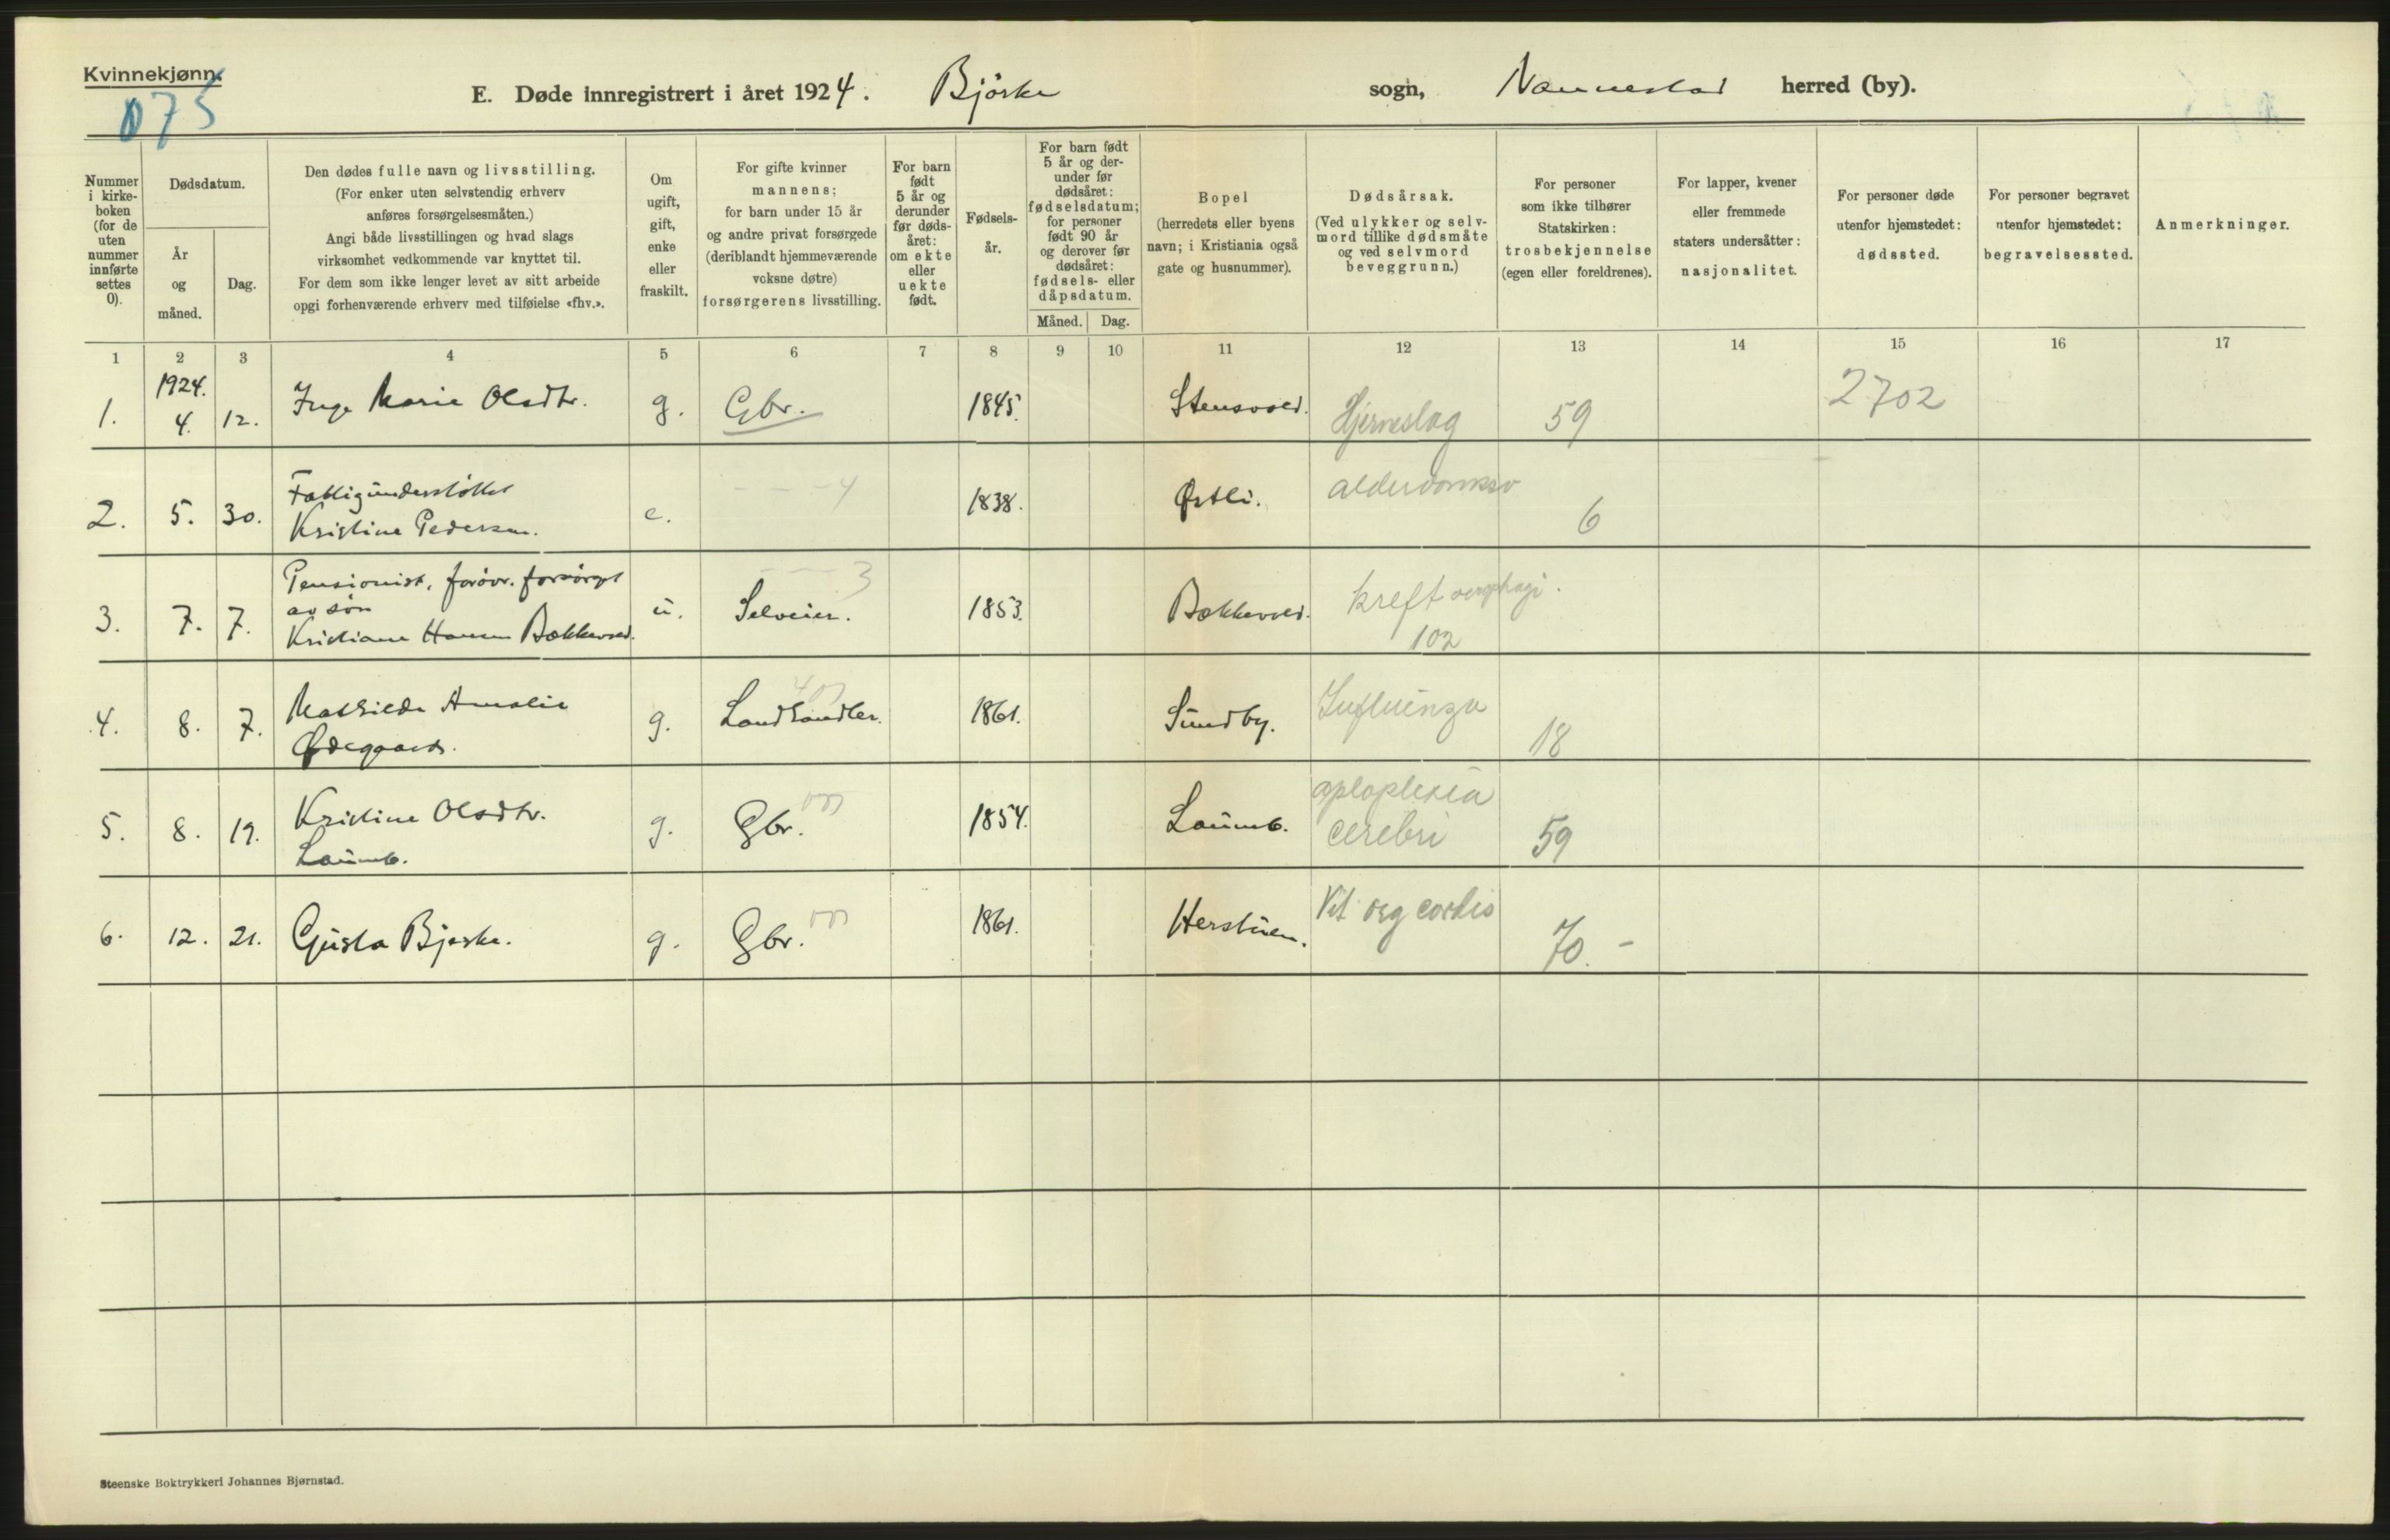 Kvinnekjønn.
075
E. Døde innregistrert i året 1924. Bjørke sogn, Nannestad herred (by).
Nummer i kirkeboken (for de uten nummer innførte settes 0).
Dødsdatum.
År og måned.
Dag.
Den dødes fulle navn og livsstilling.
(For enker uten selvstendig erhverv
anføres forsørgelsesmåten.)
Angi både livsstillingen og hvad slags
virksomhet vedkommende var knyttet til.
For dem som ikke lenger levet av sitt arbeide
opgi forhenværende erhverv med tilføielse «fhv.».
Om ugift, gift, enke eller fraskilt.
For gifte kvinner
mannens;
for barn under 15 år
og andre privat forsørgede
(deriblandt hjemmeværende
voksne døtre)
forsørgerens livsstilling.
For barn født 5 år og derunder før dødsåret: om ekte eller uekte født.
Fødselsår.
For barn født 5 år og derunder før dødsåret: fødselsdatum; for personer født 90 år og derover før dødsåret: fødsels- eller dåpsdatum.
Måned. Dag.
Bopel
(herredets eller byens
navn; i Kristiania også
gate og husnummer).
Dødsårsak.
(Ved ulykker og selvmord tillike dødsmåte
og ved selvmord
beveggrunn.)
For personer
som ikke tilhører
Statskirken:
trosbekjennelse
(egen eller foreldrenes).
For lapper, kvener
eller fremmede
staters undersåtter:
nasjonalitet.
For personer døde
utenfor hjemstedet:
dødssted.
For personer begravet
utenfor hjemstedet:
begravelsessted.
Anmerkninger.
1 2 3 4 5 6 7 8 9 10 11 12 13 14 15 16 17
1924.
1. 4. 12. Inge Marie Olsdtr. g. Gbr. 1845. Stensvold. Hjerneslag 59 2702
Fattigunderstøttet
2. 5. 30. Kristine Pedersen. e. - - - 4 1838. Østli. alderdomssv 6
Pensionist, forøvr. forsørget
av søn
3. 7. 7. Kristiane Hansen Bækkevold. u. - - - 3 Selveier. 1853. Bækkevold. kreft oesophagi. 102
4. 8. 7. Mathilde Amalie
Ødegaard. g. Landhandler. 1861. Sundby. Influenza 18
5. 8. 19. Kristine Olsdtr.
Laumb. g. Gbr. 1854. Laumb. aploplexia
cerebri 59
6. 12. 21. Gusta Bjørke. g. Gbr. 1861. Herstuen. Vit org cordis 70. -
Steenske Boktrykkeri Johannes Bjørnstad.